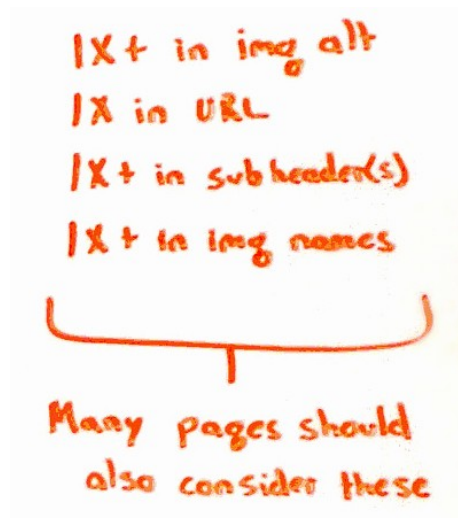 1X+ in img alt
1X in URL
1X+ in subheader(s)
1X+ in img names
Many pages should
also consider these